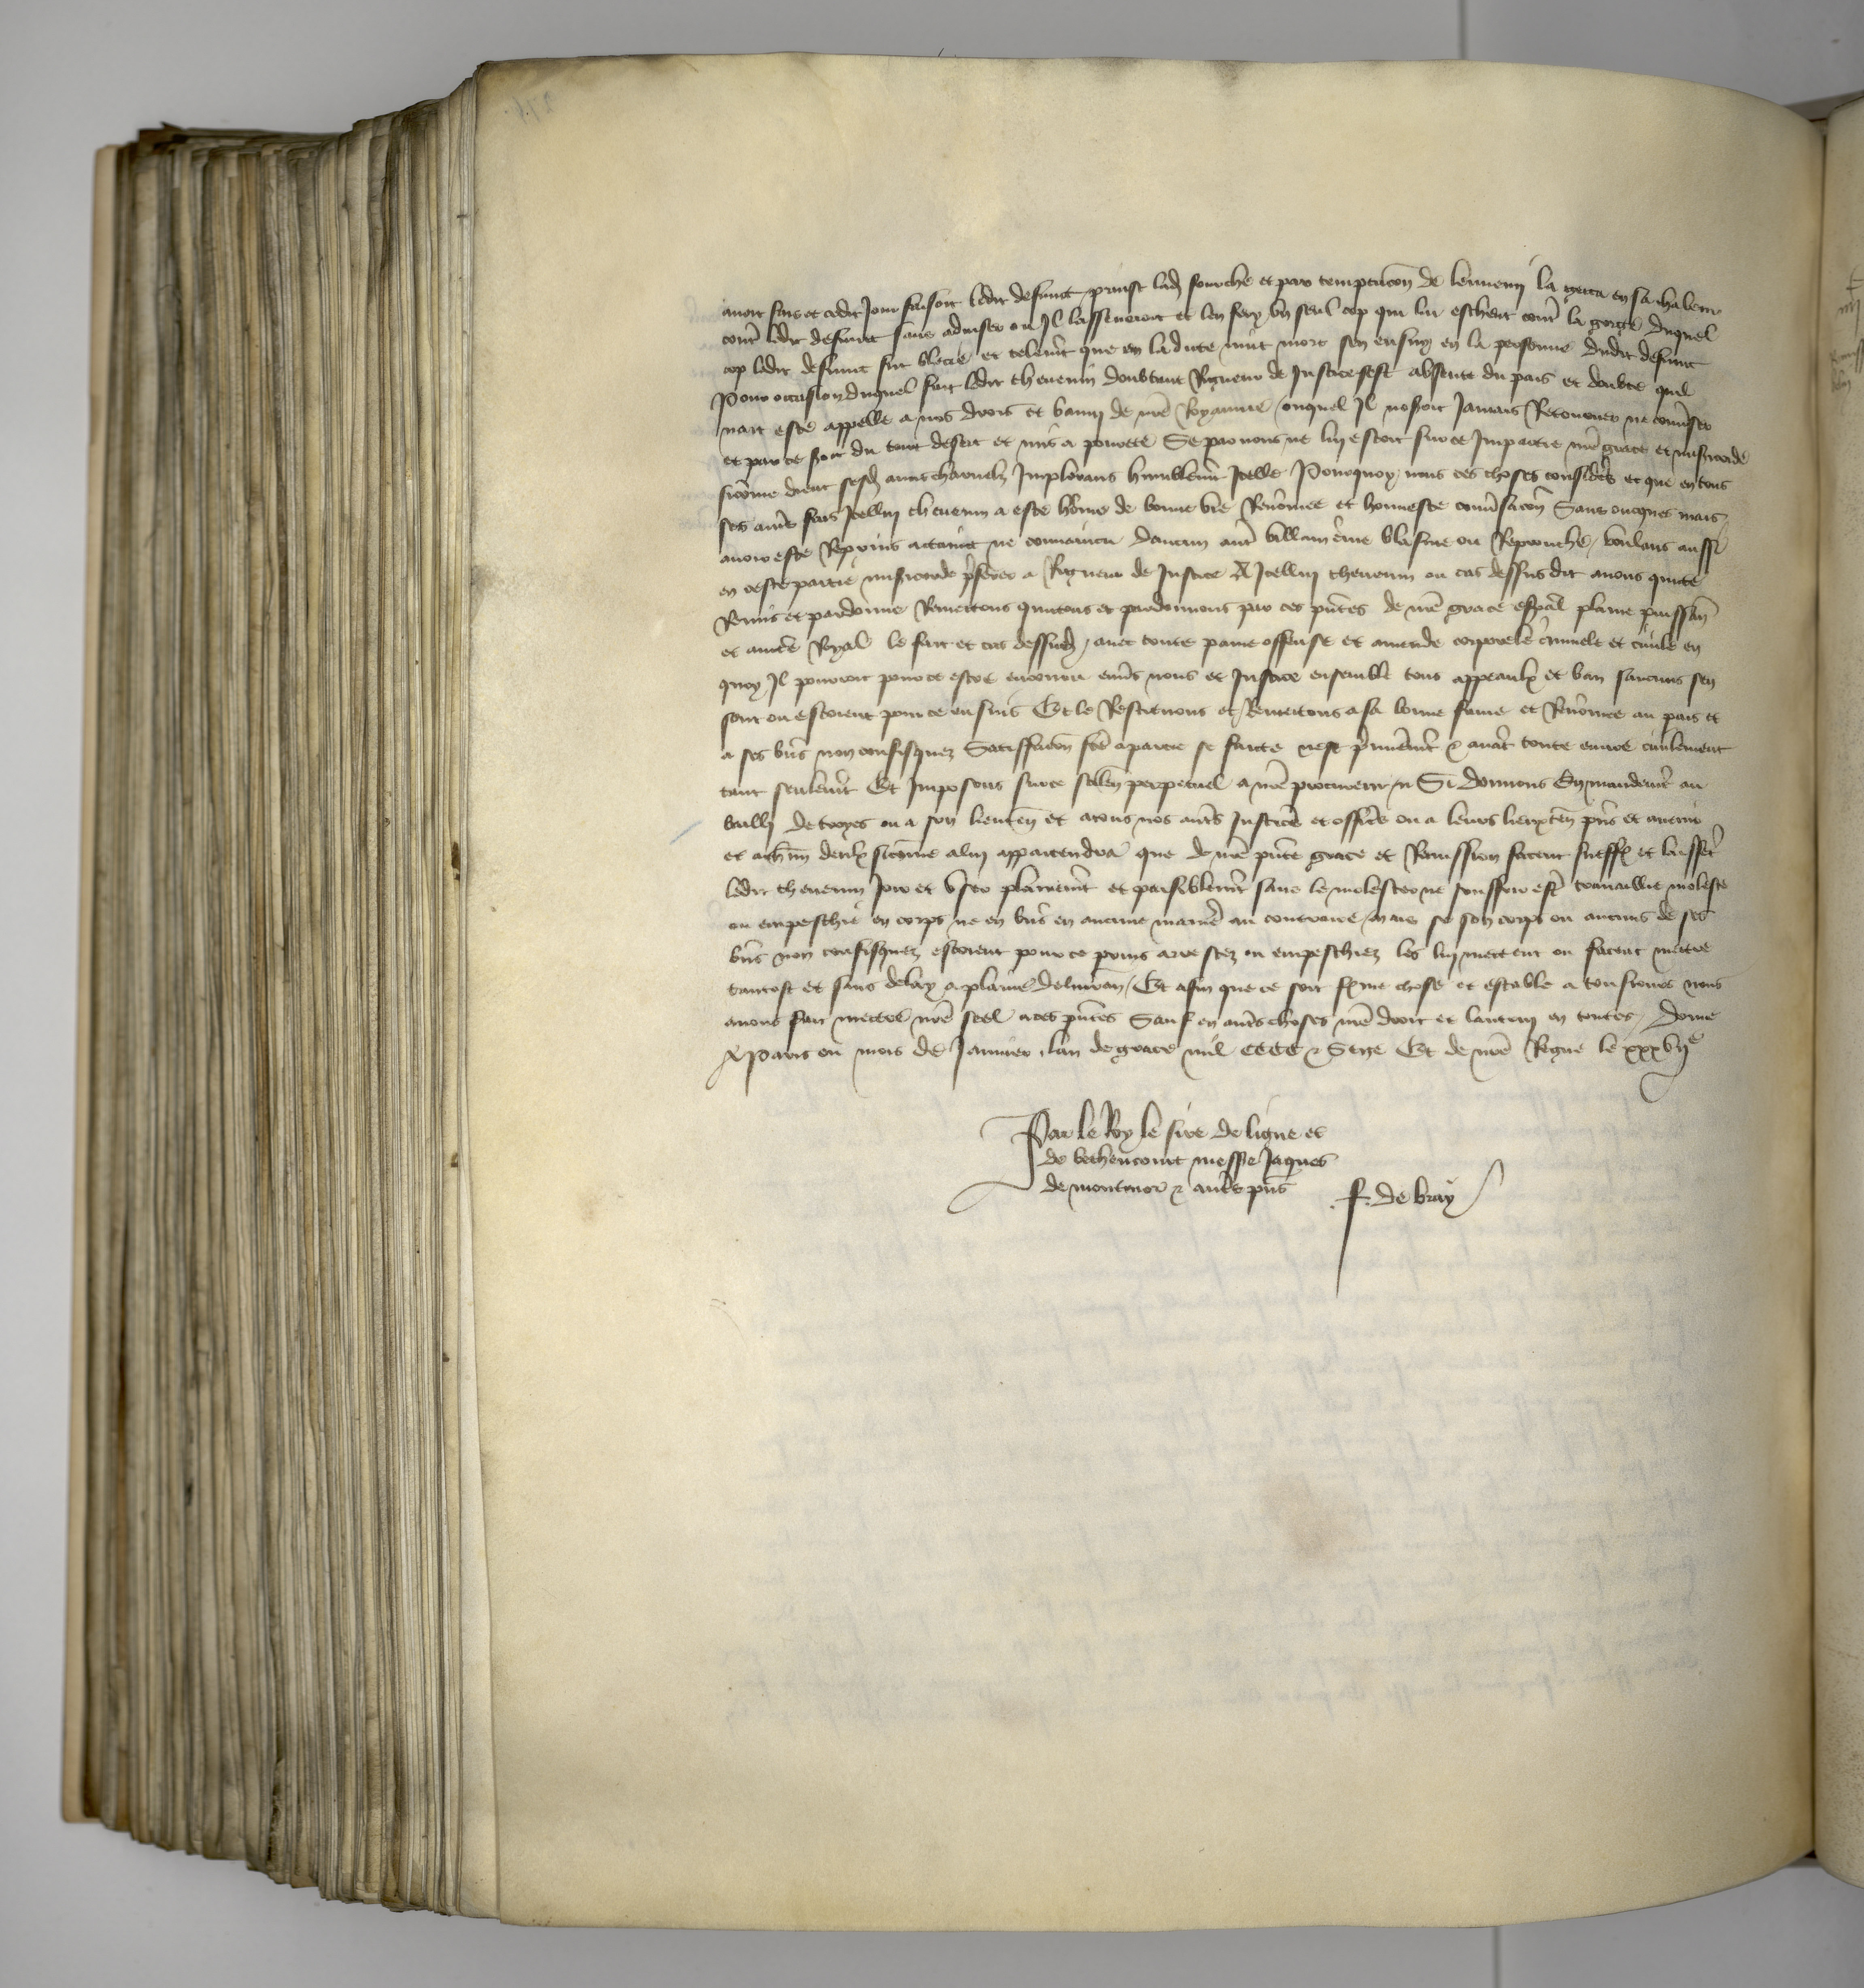 avoir fais et ledit jour faisoit ledit defunct print lad fourche et par temptacon de lennemi la gecta en sa chaleur
contre ledit defunct sans adviser ou Il lassenoit et len fery un seul cop qui lui escheut contr la gorge Duquel
cop ledit defunct fut blecie et telemt que en ladicte nuit mort sen ensuy en la personne dudit defunct
Pour occasion duquel fait ledit thevenin doubtant Rigueur de Justice sest absente du pais et doubte quil
nait este appelle a nos drois et banny de nre Royaume ouquel Il noseroit Jamais Retourner ne convser
et par ce seroit du tout desert et mis a povrete Se par nous ne lui estoit sur ce Impartie nre grace et misericorde
sicome dient sesd amis charnelz Implorans humblemt Icelle Pourquoy nous ces choses considerees et que en tous
ses autrs fais Icellui thevenin a este home de bonne vie Renomee et honneste conversacon Sans oncques mais
avoir este Reprins attaint ne convaincu Daucun autr villain crime blasme ou Reprouche voulans aussi
en ceste partie misericorde pferer a Rigueur de Justice A Icellui thevenin ou cas dessusdit avons quicte
Remis et pardonne Remettons quictons et pardonnons par ces pntes de nre grace espal plaine puissan
et auctte Royal le fait et cas dessusd avec toute paine offense et amende corporele criminele et civile en
quoy Il pourroit pour ce estre encouru envrs nous et Justice ensemble tous appeaulx et ban saucuns sen
sont ou estoient pour ce ensuis Et le Restituons et Remettons a sa bonne fame et Renomee au pais et
a ses bns non confisquez Satisfacion fte a partie se faicte nest premieremt & avat toute euvre civilement
tant seulemt Et Imposons sur ce silen perpetuel a nre procureur Si Donnons En mandemt au
bailli de troyes ou a son lieuten et a tous nos autrs Justiciers et officiers ou a leurs lieuxten pns et avenir
et a chun deulx sicome a lui appartendra que de nre pnte grace et Remission facent sueffr et laissent
ledit thevenin Joir et user plainemt et paisiblemt sans le molester ne souffrir estr travaillie moleste
ou empeschie en corps ne en bns en aucune maniere au contraire mais se son corps ou aucuns de ses
bns non confisquez estoient pour ce prins arrestez ou empeschiez les lui mettent ou facent mettre
tantost et sans delay a plaine delivran Et afin que ce soit ferme chose et estable a tousjours nous
avons fait mettre nre scel a ces pntes Sauf en autrs choses nre droit et lautruy en toutes Donne
A Paris ou mois de Janvier lan de grace mil CCCC & Seze Et de nre Regne le xxxvije
Par le Roy le sire de ligne et
de bethencourt messire Jaques
de montmor & autrs pns
f. de bray